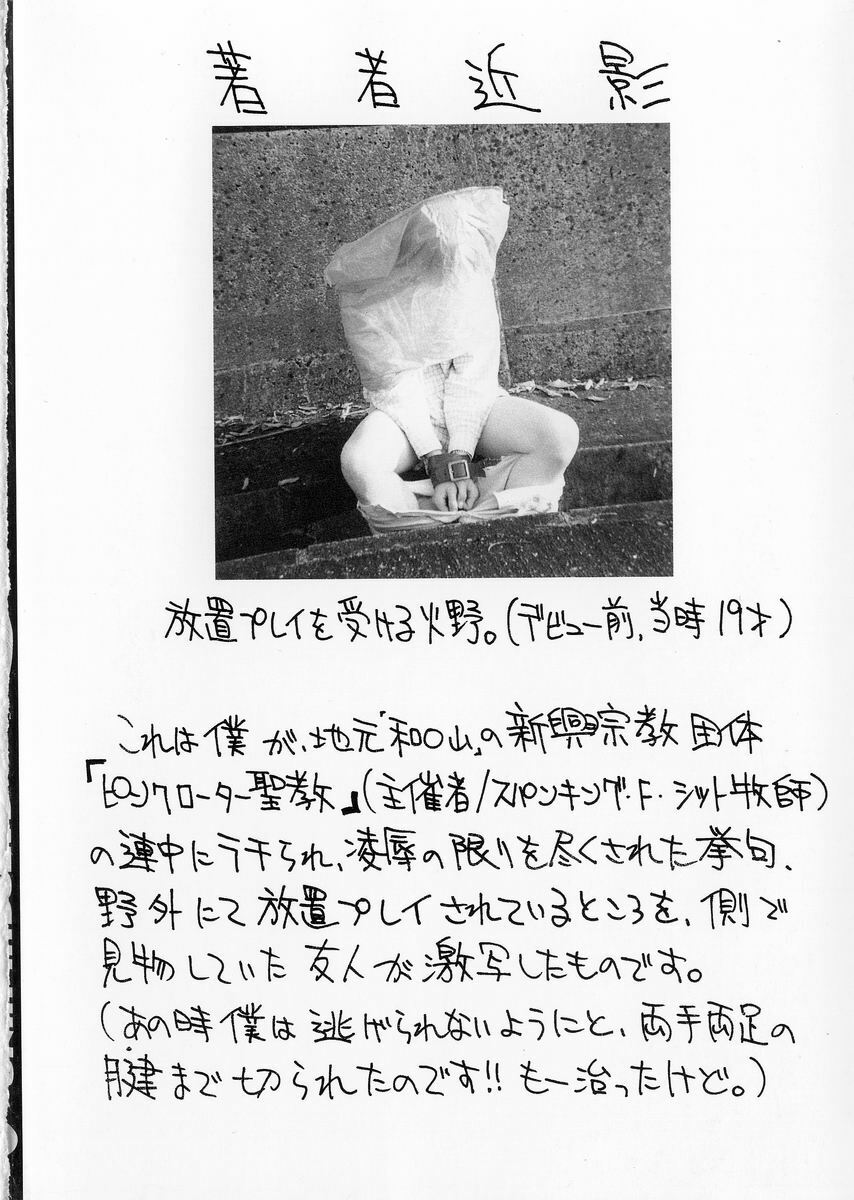 著者近影
放置プレイを受ける火野。(デビュー前、当時19才)
これは僕が、地元「和〇山」の新興宗教団体
「ピンクローター聖教」(主催者/スパンキング・F・シット牧師)
の連中にラチられ、凌辱の限りを尽くされた挙句、
野外にて放置プレイされているところを、側で
見物していた友人が激写したものです。
(あの時僕は逃げられないようにと、両手両足の
腱まで切られたのです!!もー治ったけど。)